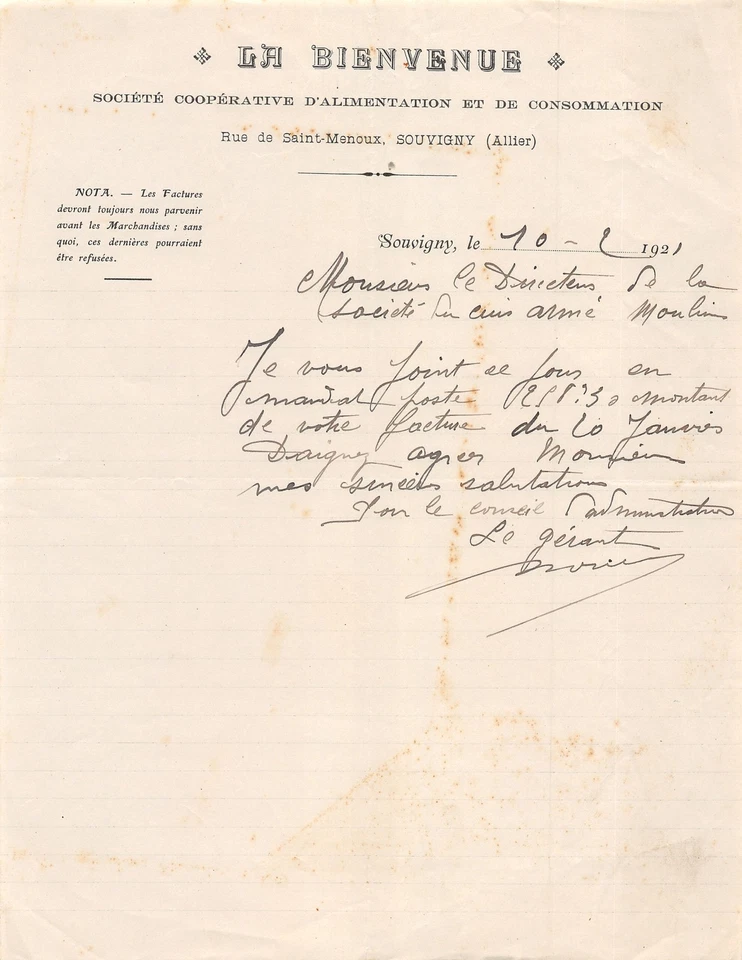 LA BIENVENUE
SOCIÉTÉ COOPÉRATIVE D'ALIMENTATION ET DE CONSOMMATION
Rue de Saint-Menoux, SOUVIGNY (Allier)
NOTA. — Les Factures
devront toujours nous parvenir
avant les Marchandises ; sans
quoi, ces dernières pourraient
être refusées.
Souvigny, le 10 - 2 1921
Monsieur le Directeur de la
société du Moulins
Je vous joint ce jour en
mandat poste montant
de votre facture du 20 Janvier
Daignez agreer Monsieur
mes sincères salutations
Pour le conseil d'administration
Le gérant